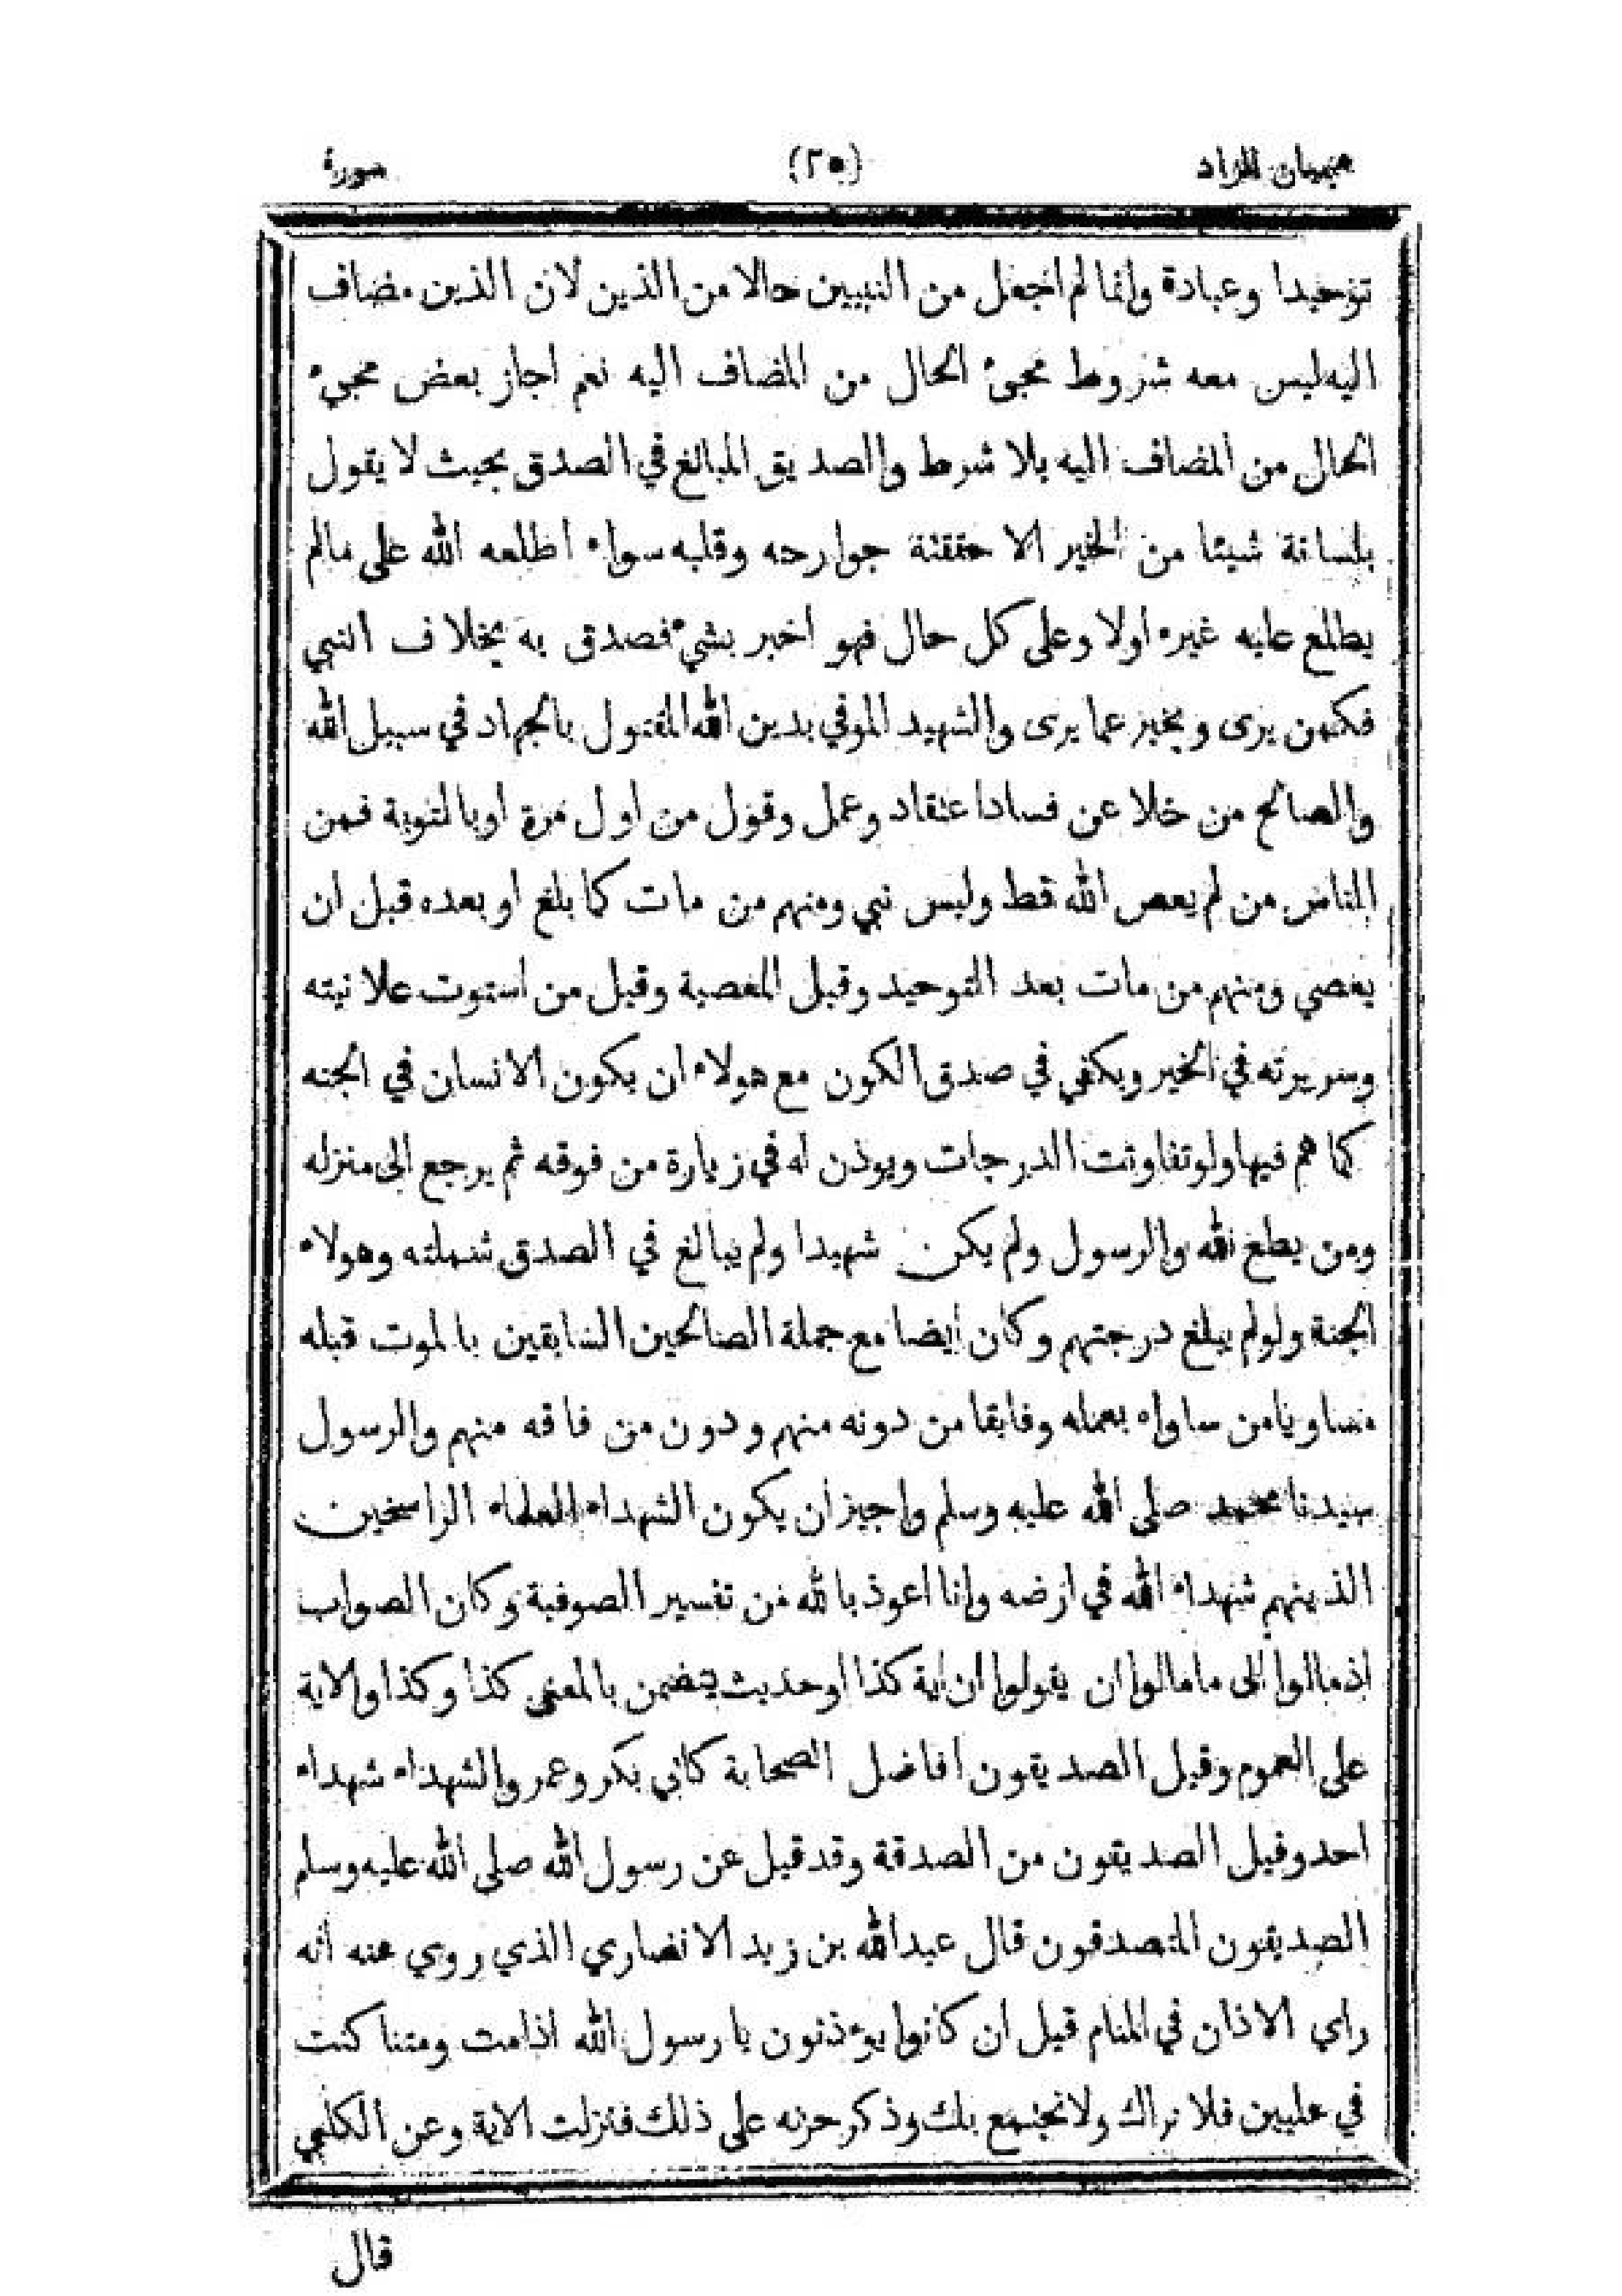 هميان الزاد (٢٥٠) سورة
توحيدا وعبادة وانما لم اجعل من النبيين حالا من الذين لان الذين مضاف
اليه ليس معه شروط مجئ الحال من المضاف اليه نعم اجاز بعض مجيء
الحال من المضاف اليه بلا شرط والصديق المبالغ في الصدق بحيث لا يقول
بلسانة شيئا من الخير الا حققتة جوارحه وقلبه سواء اطلعه الله على مالم
يطلع عليه غيره اولا وعلى كل حال فهو اخبر بشيء فصدق به بخلاف النبي
فكمن يرى ويخبر عما يرى والشهيد الموفي بدين الله المقتول بالجهاد في سبيل الله
والصالح من خلا عن فساد اعتقاد وعمل وقول من اول مرة او بالتوبة فمن
الناس من لم يعص الله قط وليس نبي ومنهم من مات كما بلغ او بعده قبل ان
يعصي ومنهم من مات بعد التوحيد وقبل المعصية وقيل من استوت علانيته
وسريرته في الخير ويكفي في صدق الكون مع هولاء ان يكون الانسان في الجنه
كما هم فيها ولو تفاوتت الدرجات ويوذن له في زيارة من فوقه ثم يرجع الى منزله
ومن يطع الله والرسول ولم يكن شهيدا ولم يبالغ في الصدق شملته وهولاء
الجنة ولو لم يبلغ درجتهم وكان أيضا مع جملة الصالحين السابقين بالموت قبله
مساويا من ساواه بعمله وفايقا من دونه منهم ودون من فاقه منهم والرسول
سيدنا محمد صلى الله عليه وسلم واجيز ان يكون الشهداء العلماء الراسخين
الذينهم شهداء الله في ارضه وانا اعوذ بالله من تفسير الصوفية وكان الصواب
اذ مالوا الى ما مالوا ان يقولوا ان اية كذا او حديث يتضمن بالمعنى كذا وكذا والاية
على العموم وقيل الصديقون افاضل الصحابة كابي بكر وعمر والشهداء شهداء
احد وقيل الصديقون من الصدقة وقد قيل عن رسول الله صلى الله عليه وسلم
الصديقون المتصدقون قال عبدالله بن زيد الانصاري الذي روي عنه أنه
راى الاذان في المنام قيل ان كانوا يؤذنون يا رسول الله اذا مت ومتنا كنت
في عليين فلا نراك ولا نجتمع بك وذكر حزنه على ذلك فنزلت الاية وعن الكلبي
قال